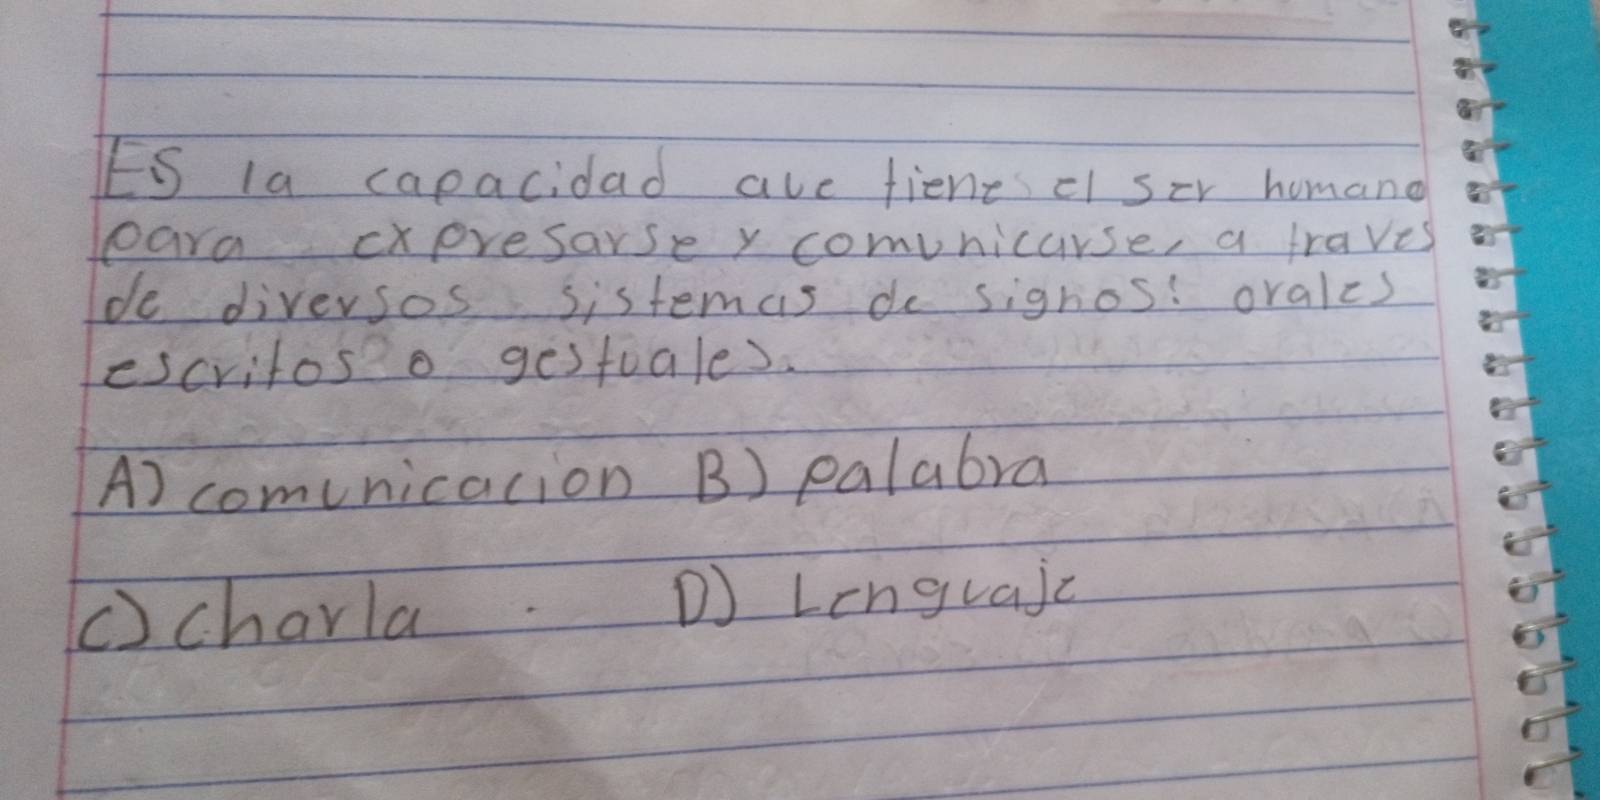 Es la capacidad que tiene el ser humano
para expresarse y comunicarse, a traves
de diversos sistemas de signos: orales
escritos o gestuales.
A) comunicacion B) palabra
C) charla D) Lenguaje